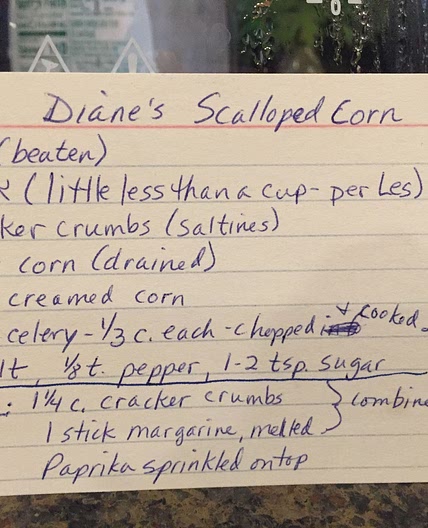 Diane's Scalloped Corn
(beaten)
(little less than a cup - per Les)
ker crumbs (saltines)
corn (drained)
creamed corn
celery - 1/3 c. each - chopped & cooked
lt, 1/8 t. pepper, 1-2 tsp. sugar
: 1 1/4 c. cracker crumbs } combine
1 stick margarine, melted
Paprika sprinkled on top